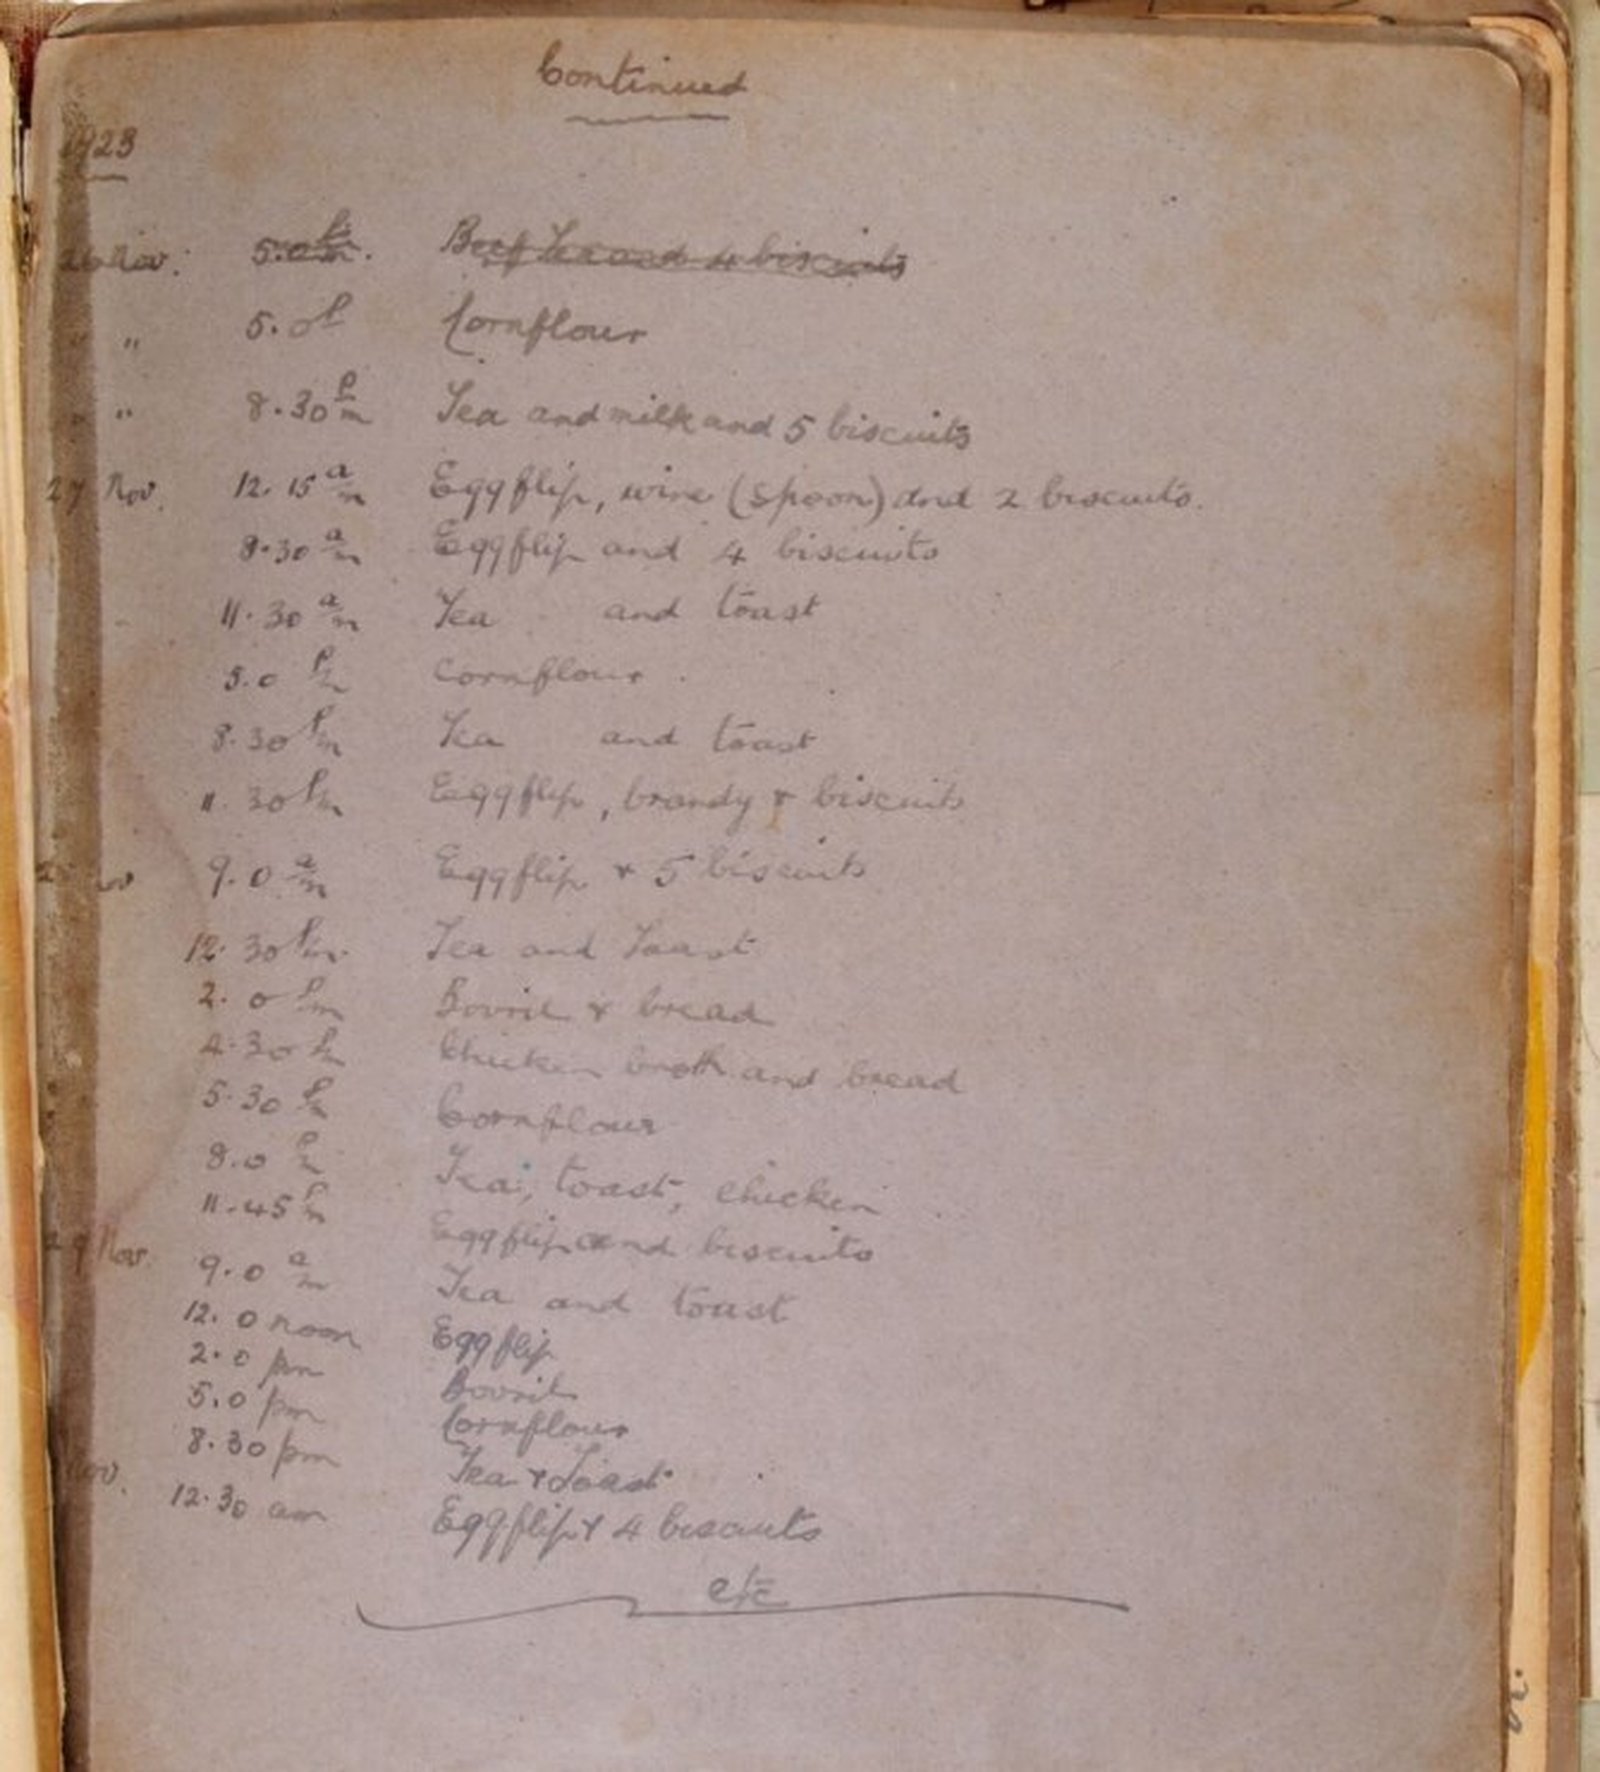 Continued
1923
26 Nov. 5.0 pm. Beef Tea and 4 biscuits
" " 5.0 p Cornflour
" " 8.30 pm Tea and milk and 5 biscuits
27 Nov. 12.15 am Eggflip, wine (spoon) and 2 biscuits.
8.30 am Eggflip and 4 biscuits
11.30 am Tea and toast
5.0 pm Cornflour.
8.30 pm Tea and toast
11.30 pm Eggflip, brandy & biscuits
9.0 am Eggflip & 5 biscuits
12.30 pm. Tea and Toast
2.0 pm Bovril & bread
4.30 pm Chicken broth and bread
5.30 pm Cornflour
8.0 pm Tea, toast, chicken
11.45 pm Eggflip and biscuits
29 Nov. 9.0 am Tea and toast
12.0 noon Eggflip
2.0 pm Bovril
5.0 pm Cornflour
8.30 pm Tea & Toast
Nov. 12.30 am Eggflip & 4 biscuits
etc